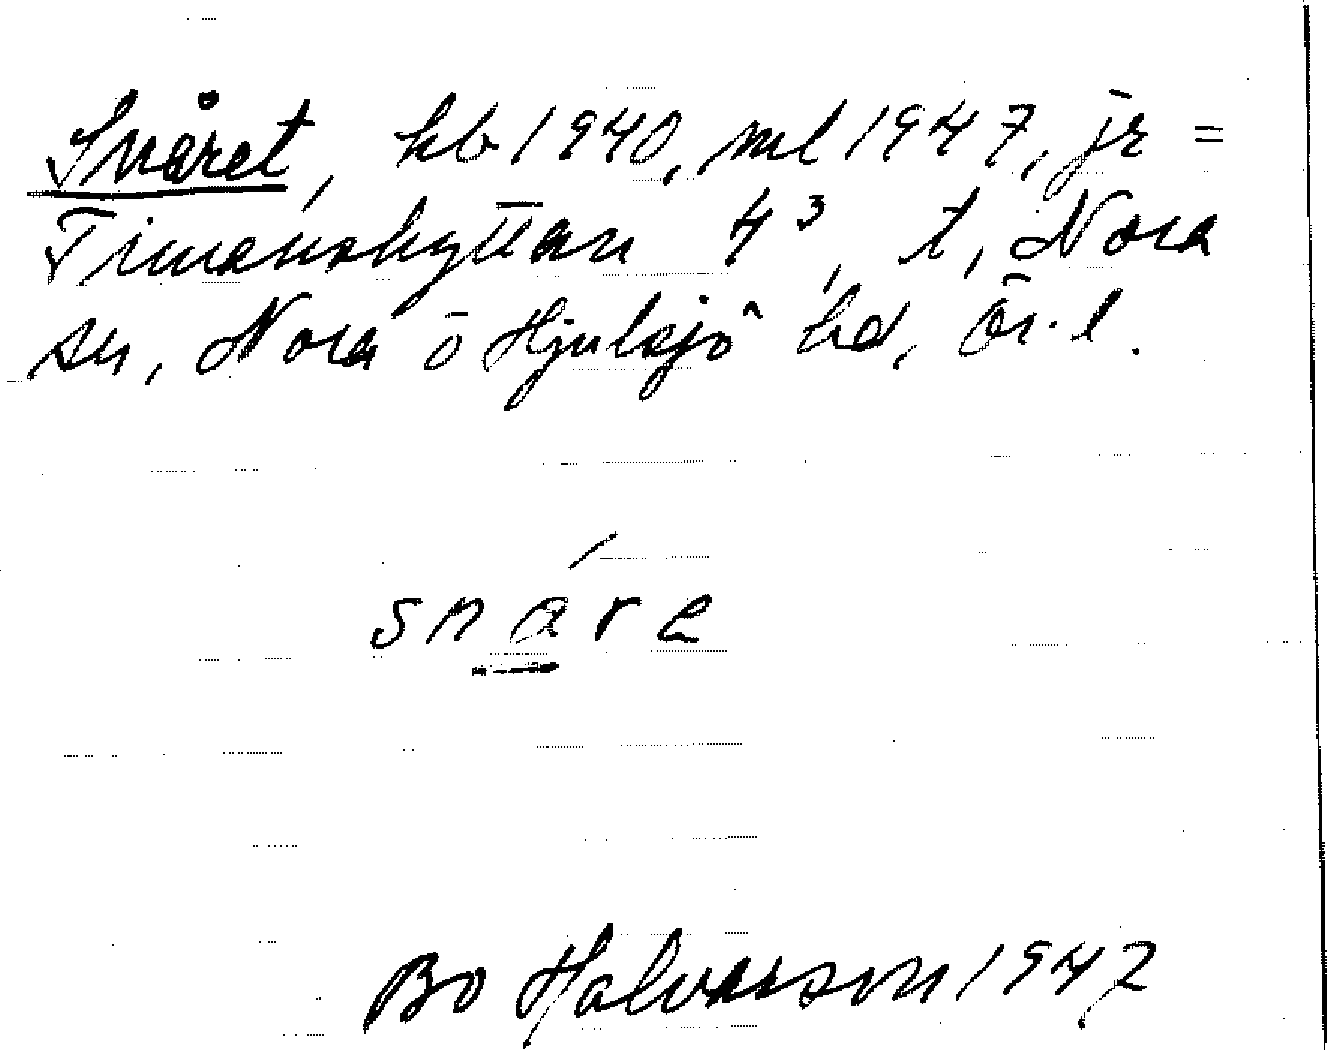 Snåret, hb 1940, ml 1947, jr =
Timanshyttan 4³, t, Nora
sn, Nora o Hjulsjö bd, Ör. l.
snáre
Bo Halvarson 1947